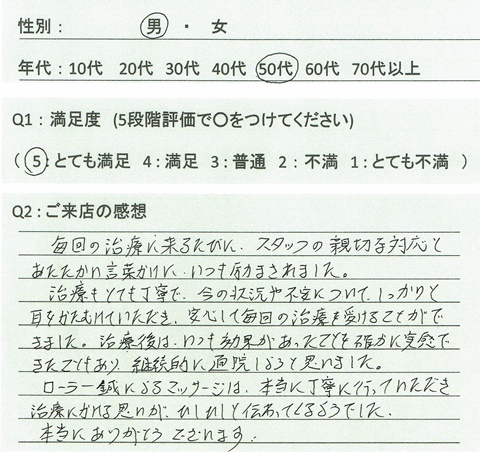 性別： 男 ・ 女
年代：10代 20代 30代 40代 50代 60代 70代以上
Q1：満足度 (5段階評価で〇をつけてください)
( 5：とても満足 4：満足 3：普通 2：不満 1：とても不満 )
Q2：ご来店の感想
毎回の治療に来るたびに、スタッフの親切な対応と
あたたかい言葉がけに、いつも励まされました。
治療もとても丁寧で、今の状況や不安について、しっかりと
耳をかたむけていただき、安心して毎回の治療を受けることがで
きました。治療後は、いつも効果があったことを確かに実感で
きたこともあり、継続的に通院しようと思いました。
ローラー鍼によるマッサージは、本当に丁寧に行っていただき
治療にかける思いが、ひしひしと伝わってくるようでした。
本当にありがとうございます。